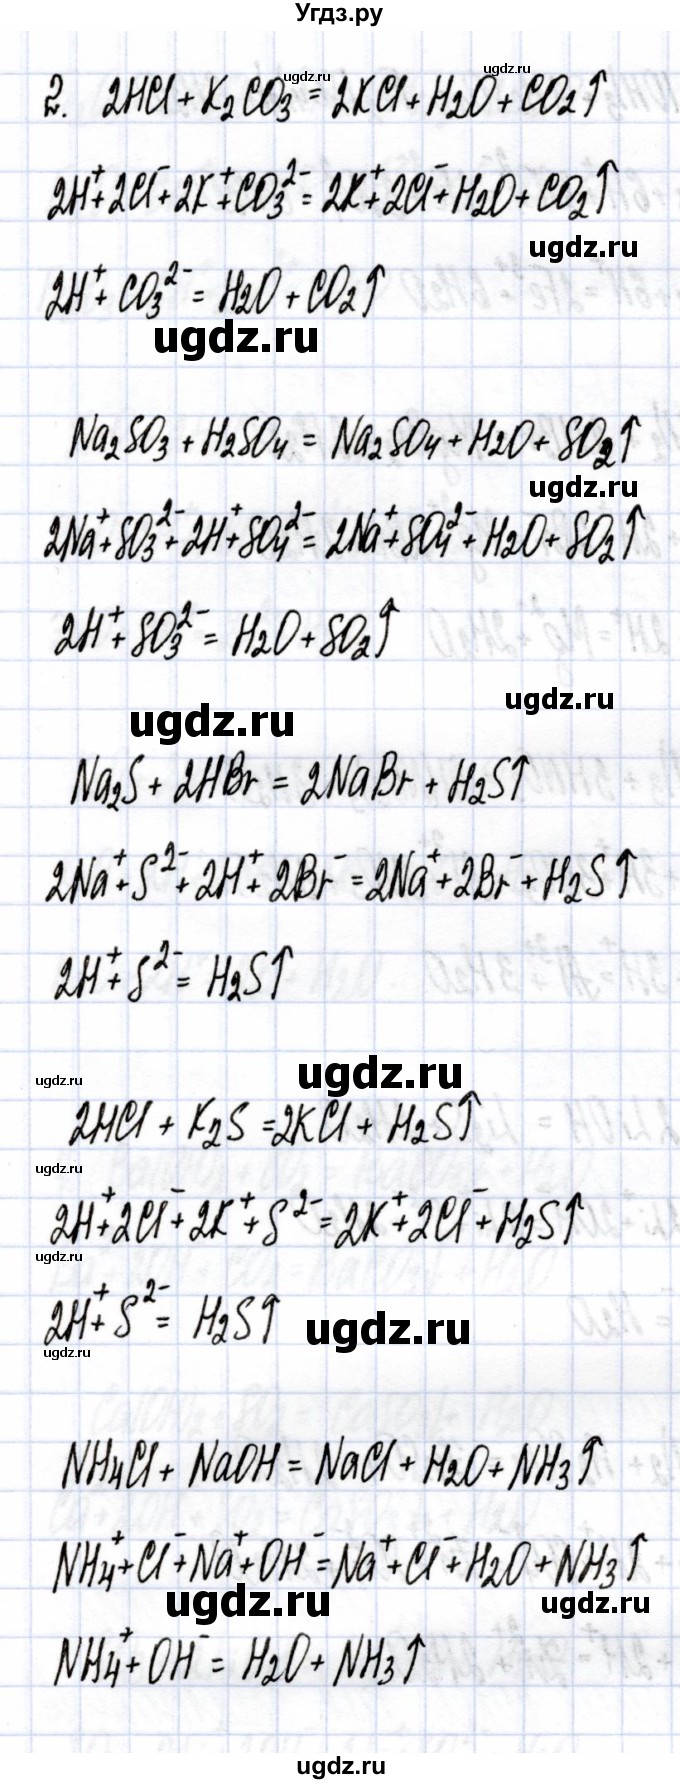 Угдз.ру
ugdz.ru
ugdz.ru
2. 2HCl + K₂CO₃ = 2KCl + H₂O + CO₂↑
2H⁺ + 2Cl⁻ + 2K⁺ + CO₃²⁻ = 2K⁺ + 2Cl⁻ + H₂O + CO₂↑
ugdz.ru
2H⁺ + CO₃²⁻ = H₂O + CO₂↑
ugdz.ru
Na₂SO₃ + H₂SO₄ = Na₂SO₄ + H₂O + SO₂↑
ugdz.ru
2Na⁺ + SO₃²⁻ + 2H⁺ + SO₄²⁻ = 2Na⁺ + SO₄²⁻ + H₂O + SO₂↑
2H⁺ + SO₃²⁻ = H₂O + SO₂↑
ugdz.ru
ugdz.ru
Na₂S + 2HBr = 2NaBr + H₂S↑
2Na⁺ + S²⁻ + 2H⁺ + 2Br⁻ = 2Na⁺ + 2Br⁻ + H₂S↑
2H⁺ + S²⁻ = H₂S↑
ugdz.ru
ugdz.ru
2HCl + K₂S = 2KCl + H₂S↑
ugdz.ru
2H⁺ + 2Cl⁻ + 2K⁺ + S²⁻ = 2K⁺ + 2Cl⁻ + H₂S↑
ugdz.ru
2H⁺ + S²⁻ = H₂S↑
ugdz.ru
ugdz.ru
NH₄Cl + NaOH = NaCl + H₂O + NH₃↑
NH₄⁺ + Cl⁻ + Na⁺ + OH⁻ = Na⁺ + Cl⁻ + H₂O + NH₃↑
ugdz.ru
ugdz.ru
NH₄⁺ + OH⁻ = H₂O + NH₃↑
ugdz.ru